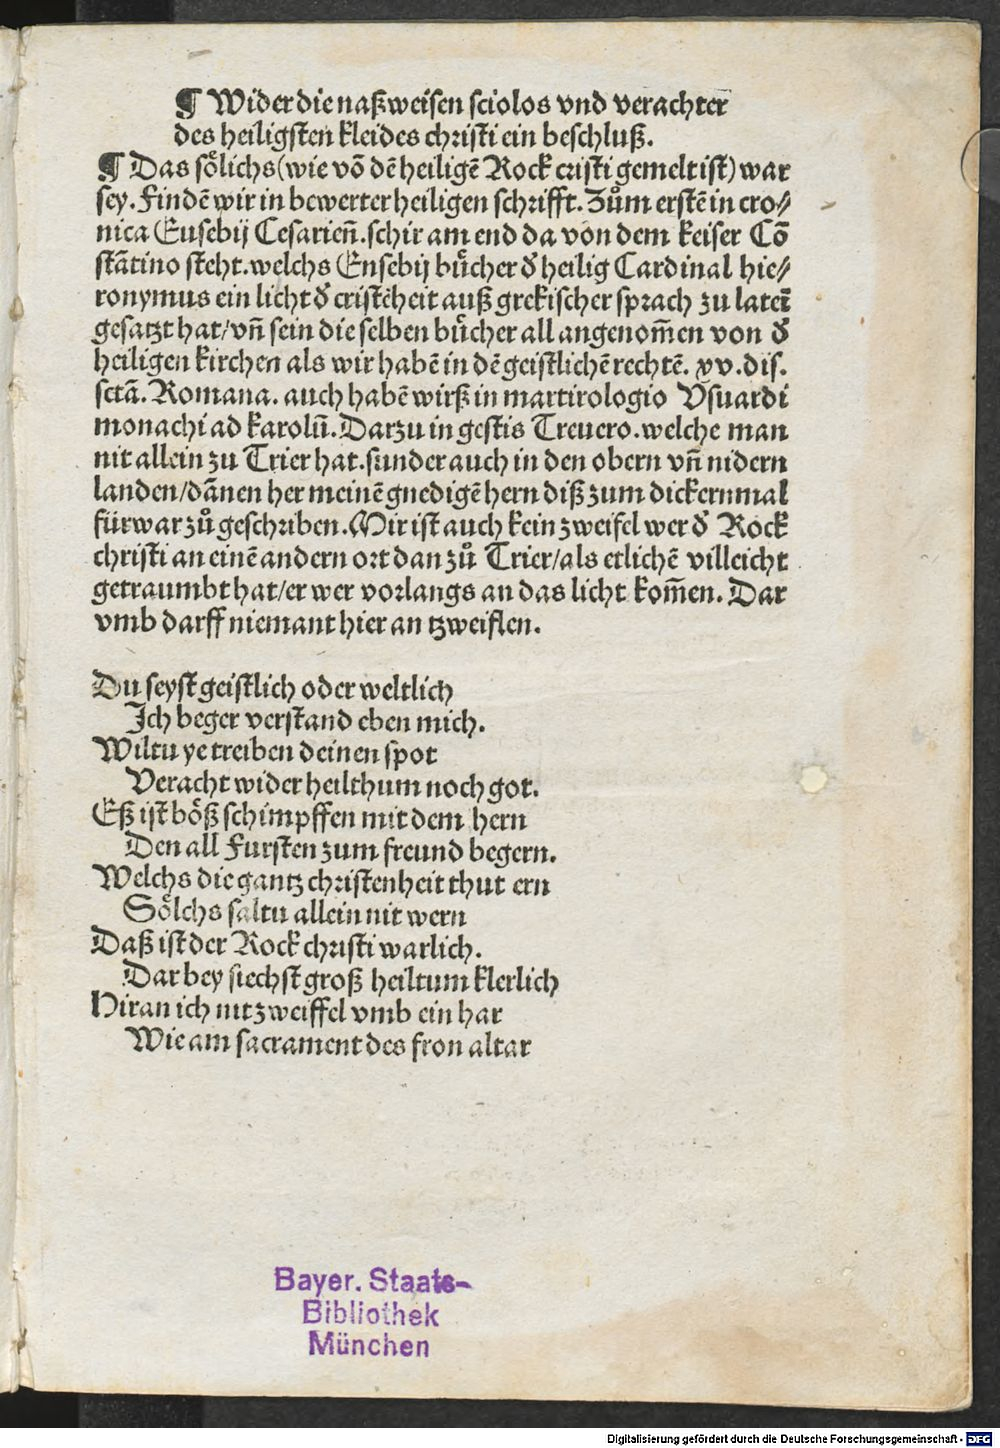 ¶ Wider die naßweisen sciolos vnd verachter
des heiligsten kleides christi ein beschluß.
¶ Das soͤlichs (wie võ dẽ heiligẽ Rock cristi gemelt ist) war
sey. Findẽ wir in bewerter heiligen schrifft. Zuͦm erstẽ in cro⸗
nica Eusebij Cesarieñ. schir am end da von dem keiser Cõ
stãtino steht. welchs Eusebij buͤcher dͤ heilig Cardinal hie⸗
ronymus ein licht dͤ cristẽheit auß grekischer sprach zu lateī
gesatzt hat/ vñ sein die selben buͤcher all angenom̃en von dͤ
heiligen kirchen als wir habẽ in dẽ geistlichẽ rechtẽ. xv. dis.
sctã. Romana. auch habẽ wirß in martirologio Vsuardi
monachi ad karolū. Darzu in gestis Treuero. welche man
nit allein zu Trier hat. sunder auch in den obern vñ nidern
landen/ dãnen her meinẽ gnedigẽ hern diß zum dickernmal
fürwar zuͦ geschriben. Mir ist auch kein zweifel wer dͤ Rock
christi an einẽ andern ort dan zuͦ Trier/ als etlichẽ villeicht
getraumbt hat/ er wer vorlangs an das licht kom̃en. Dar
vmb darff niemant hier an tzweiflen.
Du seyst geistlich oder weltlich
Ich beger verstand eben mich.
Wiltu ye treiben deinen spot
Veracht wider heilthum noch got.
Eß ist boͤß schimpffen mit dem hern
Den all Fursten zum freund begern.
Welchs die gantz christenheit thut ern
Soͤlchs saltu allein nit wern
Daß ist der Rock christi warlich.
Dar bey siechst groß heiltum klerlich
Hiran ich nit zweiffel vmb ein har
Wie am sacrament des fron altar
Bayer. Staats-
Bibliothek
München
Digitalisierung gefördert durch die Deutsche Forschungsgemeinschaft - DFG